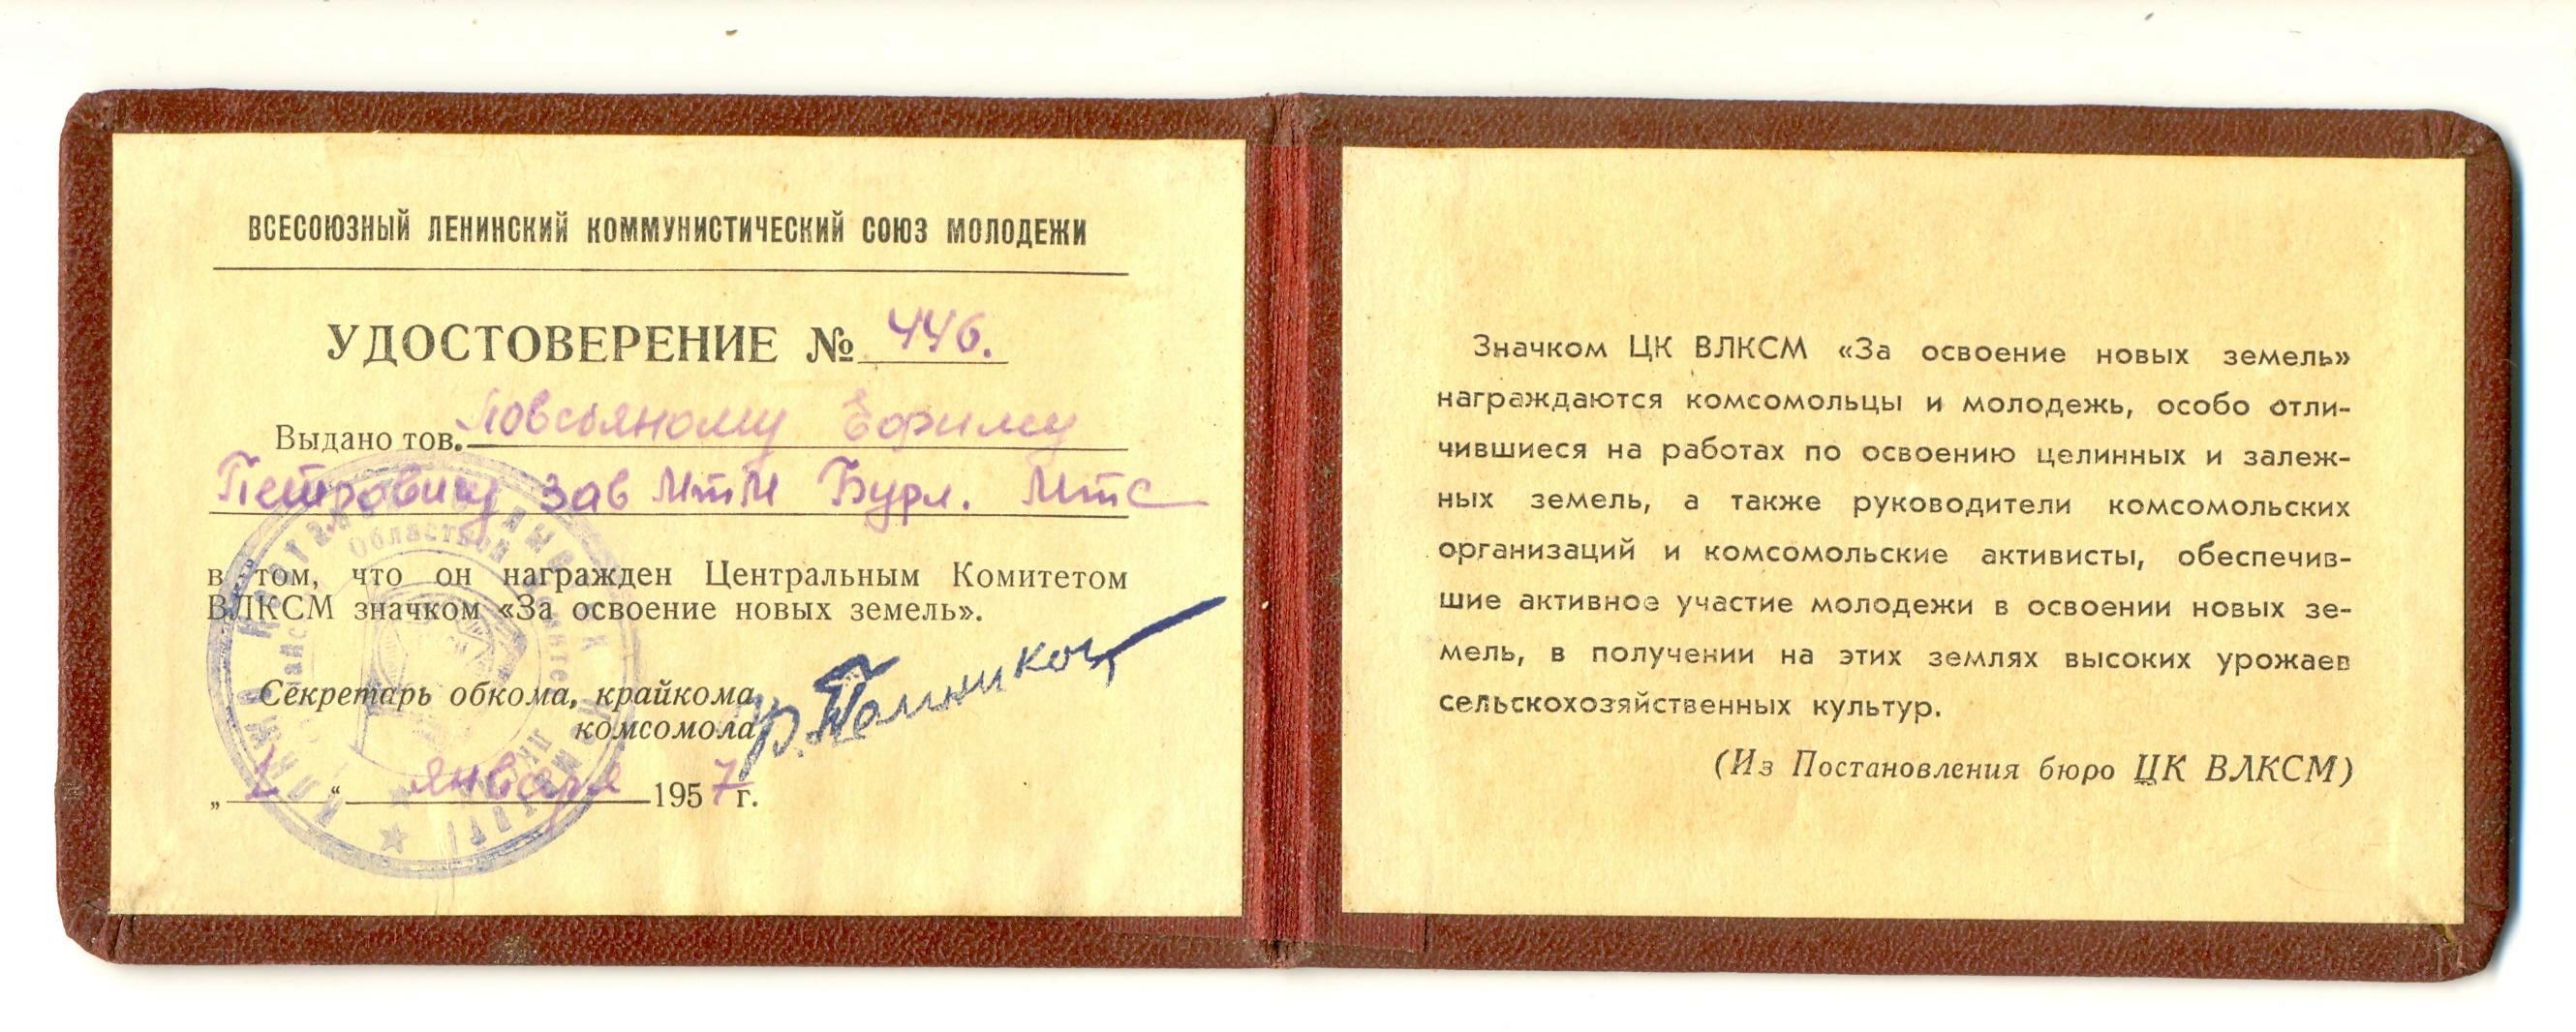 ВСЕСОЮЗНЫЙ ЛЕНИНСКИЙ КОММУНИСТИЧЕСКИЙ СОЮЗ МОЛОДЕЖИ
УДОСТОВЕРЕНИЕ № 446.
Выдано тов. Повсьяному Ефиму
Петровичу зав МтМ Бурл. Мтс
в том, что он награжден Центральным Комитетом
ВЛКСМ значком «За освоение новых земель».
Секретарь обкома, крайкома
комсомола
„ 1 “ января 1957 г.
Областной
Значком ЦК ВЛКСМ «За освоение новых земель»
награждаются комсомольцы и молодежь, особо отли-
чившиеся на работах по освоению целинных и залеж-
ных земель, а также руководители комсомольских
организаций и комсомольские активисты, обеспечив-
шие активное участие молодежи в освоении новых зе-
мель, в получении на этих землях высоких урожаев
сельскохозяйственных культур.
(Из Постановления бюро ЦК ВЛКСМ)